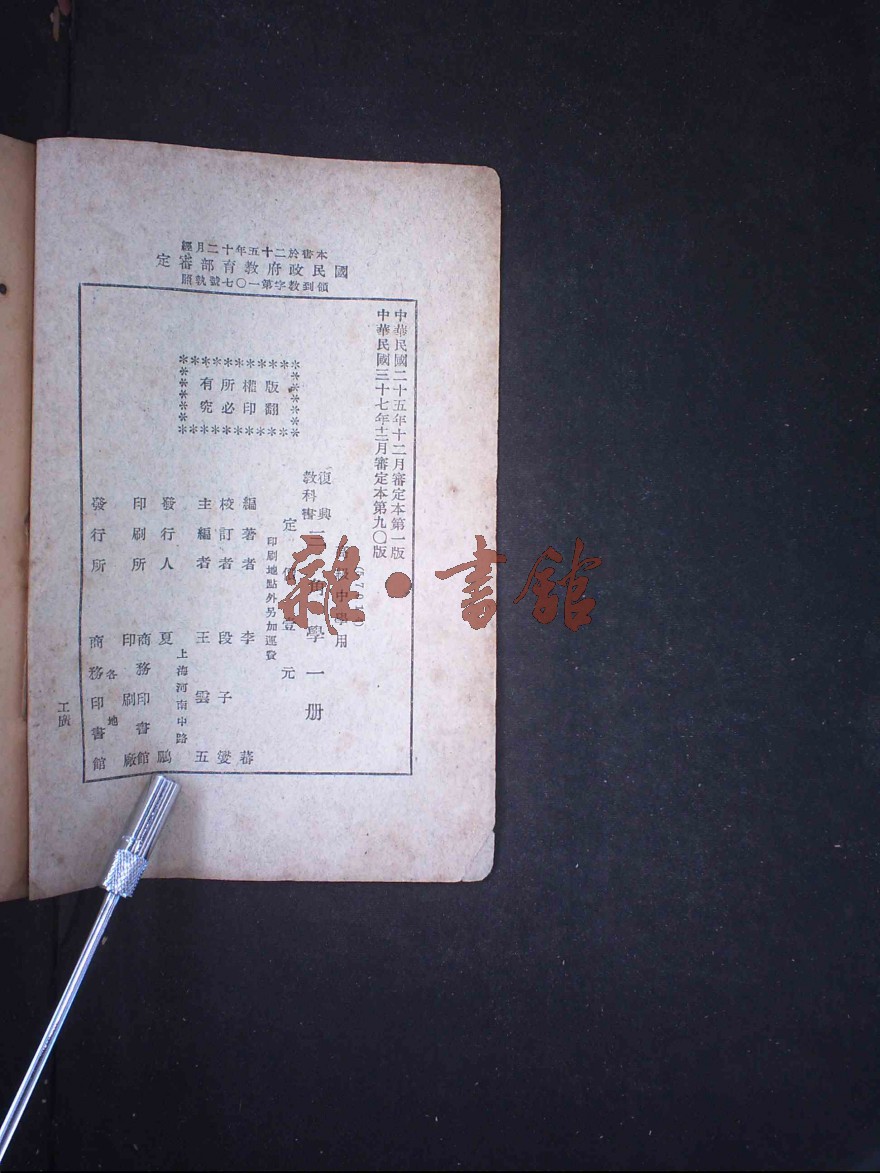 本書於二十五年十二月經
國民政府教育部審定
領到教字第一〇七號執照
中華民國二十五年十二月審定本第一版
中華民國三十七年十二月審定本第九〇版
高級中學用
復興教科書 三角學 一册
定價壹元
印刷地點外另加運費
版權所有
翻印必究
編著者 李蕃
校訂者 段子燮
主編者 王雲五
上海河南中路
發行人 夏鵬
印刷所 商務印書館印刷廠
發行所 各地 商務印書館
雜·書館